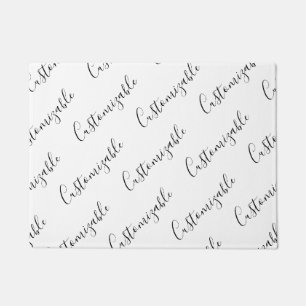 Customizable
Customizable
Customizable
Customizable
Customizable
Customizable
Customizable
Customizable
Customizable
Customizable